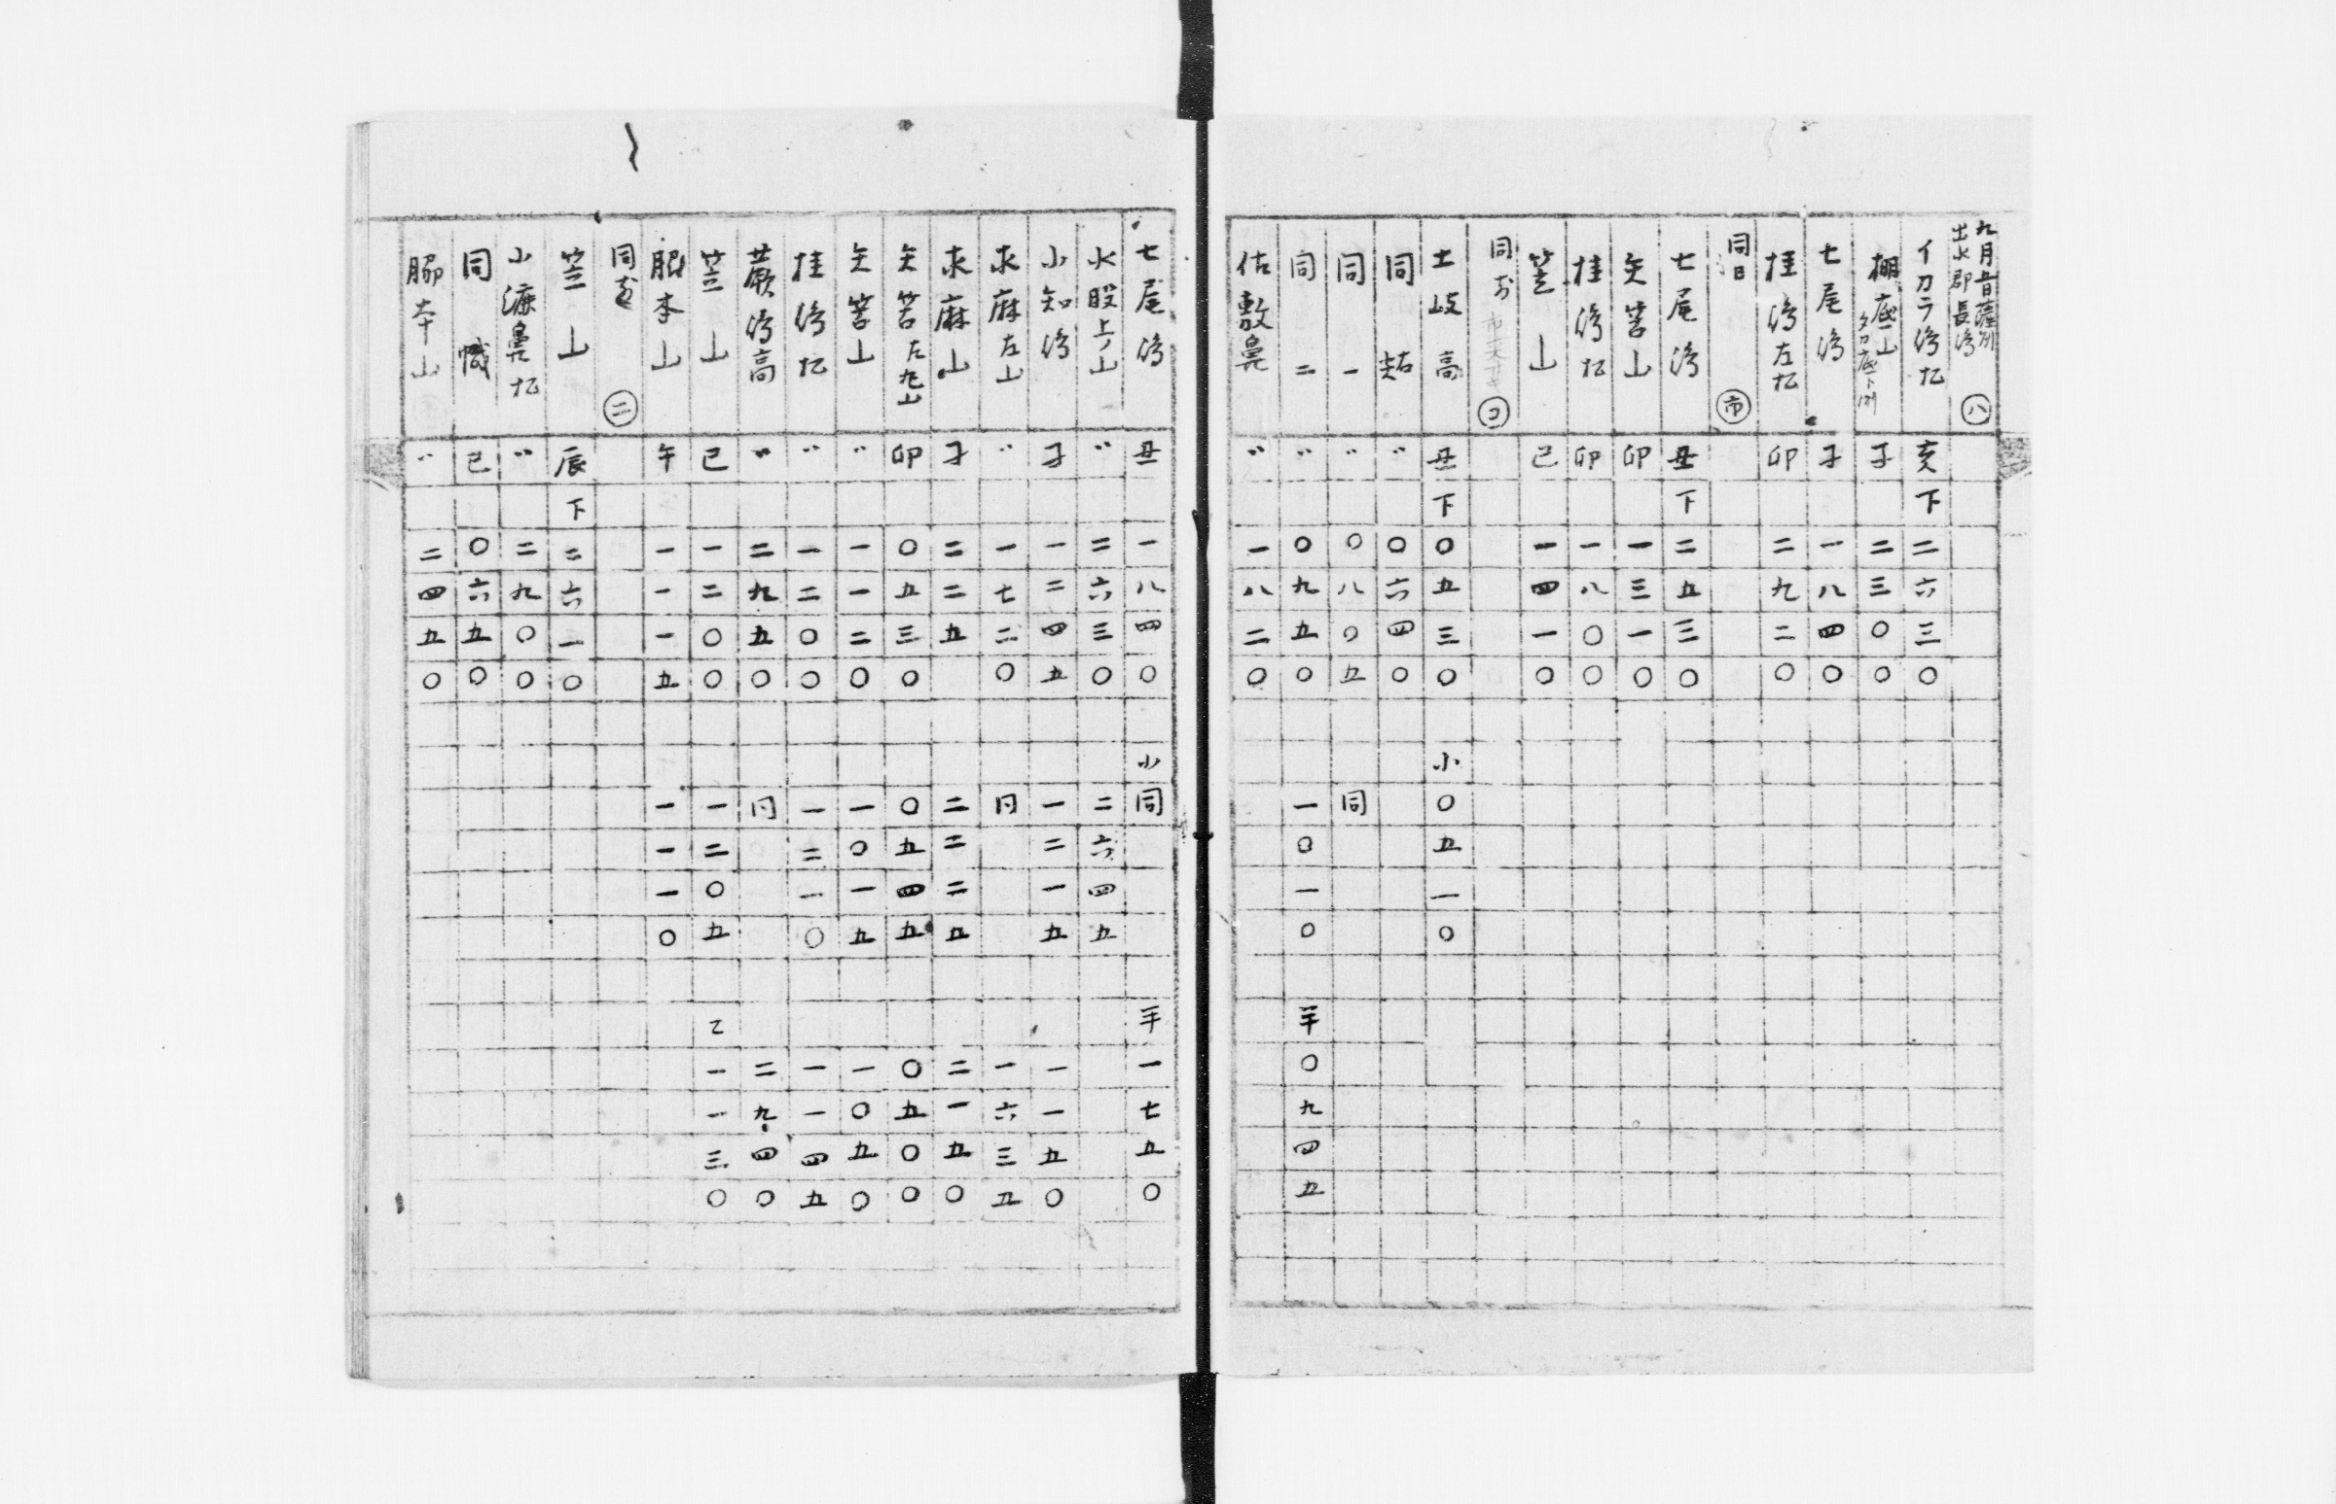 九月 薩州
出水郡長㠀 ㊇
イカラ㠀 亥下二六三〇
棚底山 タカ底下 子二三〇〇
七尾㠀 子一八四〇
桂㠀左 卯二九二〇
同日 市
七尾㠀 丑下二五三〇
矢筈山 卯一三一〇
桂㠀 卯一八〇〇
笠山 巳一四一〇
同 コ
土岐高 丑下〇五三〇 小〇五一〇
同 〃〇六四〇
同一 〃〇八〇五 同
同二 〃〇九五〇 一〇一〇 半〇九四五
佐敷鼻 〃一八二〇
七尾㠀 丑一八四〇 小同 半一七五〇
水股上ノ山 〃二六三〇 二六四五
小知㠀 子一二四五 一二一五 一一五〇
求麻左山 〃一七二〇 同 一六三五
求麻山 子二二五 二二二五 二一五〇
矢筈左丸山 卯〇五三〇 〇五四五 〇五〇〇
矢筈山 〃一一二〇 一〇一五 一〇五〇
桂㠀 〃一二〇〇 一二一〇 一一四五
蕨㠀高 〃二九五〇 同 二九四〇
笠山 巳一二〇〇 一二〇五 乙一一三〇
脇本山 午一一一五 一一一〇
同 ㊁
笠山 辰下二六一〇
小 鼻 〃二九〇〇
同 巳〇六五〇
脇本山 〃二四五〇